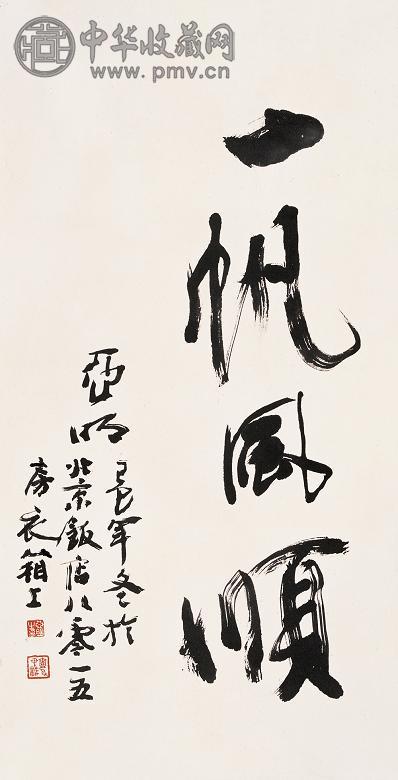 中华收藏网
www.pmv.cn
一帆風順
亞明
己巳年冬於
北京飯店八零一五
房衣箱上